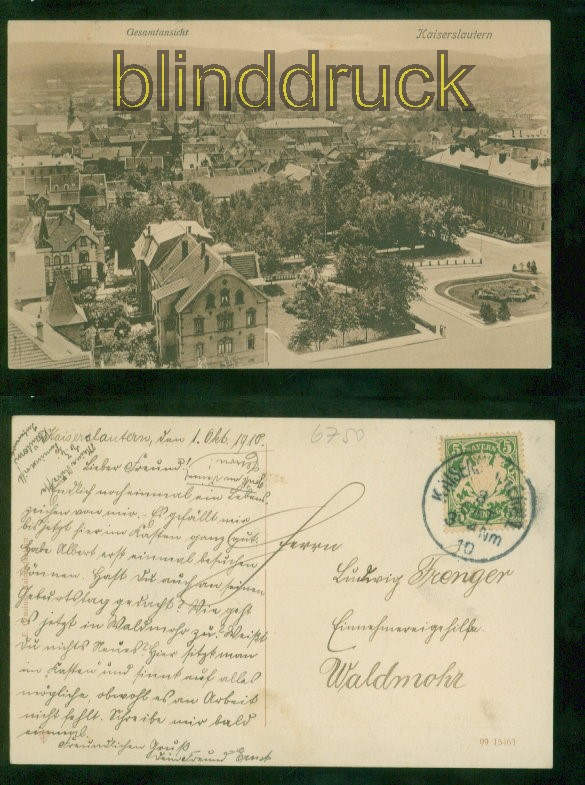 Gesamtansicht
Kaiserslautern
blinddruck
Kaiserslautern, den 1. Okt. 1910.
6750
Lieber Freund!
Endlich noch einmal ein Lebens-
zeichen von mir. Es gefällt mir
bis jetzt hier im Kasten ganz gut.
Habe Albert erst einmal besuchen
können. Hast Du auch an seinen
Geburtstag gedacht? Wie geht
es jetzt in Waldmohr zu? Weißt
Du nichts Neues? Hier sitzt man
im "Kasten" und sinnt auf alles
mögliche, obwohl es an Arbeit
nicht fehlt. Schreibe mir bald
einmal.
Freundlichen Gruß
Dein Freund Ernst
5 BAYERN 5
Herrn
Ludwig Frenger
Einnehmereigehilfe.
Waldmohr
09 15161